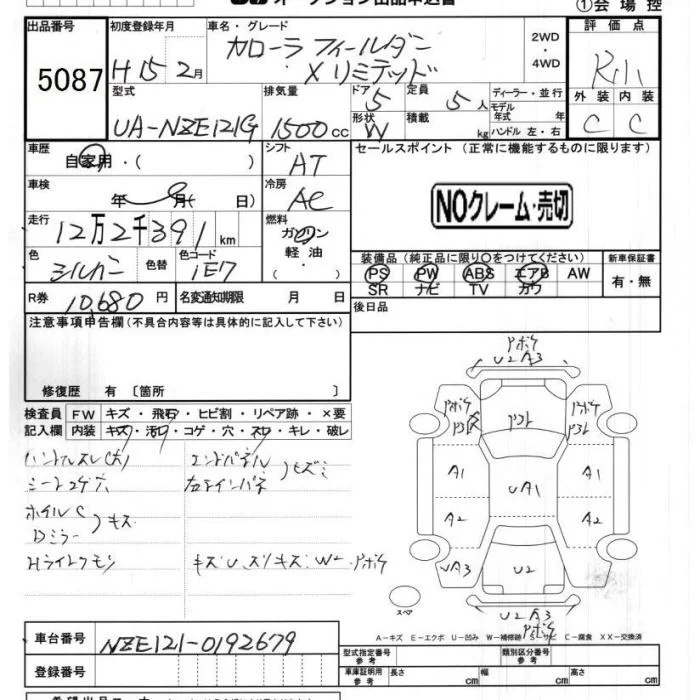 オークション出品申込書
①会場控
出品番号 初度登録年月 車名・グレード 評価点
5087
H15 2月
カローラ フィールダー
・Xリミテッド
2WD
・
4WD
型式 排気量 ドア 定員 ディーラー・並行 外装 内装
UA-NZE121G 1500cc 5 5人
モデル
年式 年
形状 積載 kg ハンドル 左・右
W
C C
車歴 自家用・( ) シフト AT
セールスポイント (正常に機能するものに限ります)
車検 年 月( 日) 冷房 AC
NOクレーム・売切
走行 12万2千391km 燃料 ガソリン
軽油
( )
色 シルバー 色替 色コード 1E7
装備品 (純正品に限り○をつけてください) 新車保証書
PS PW ABS エアB AW 有・無
SR ナビ TV カワ
R券 10,680円 名変通知期限 月 日
後日品
注意事項申告欄 (不具合内容等は具体的に記入して下さい)
修復歴 有 〔箇所 〕
検査員 FW キズ・飛石・ヒビ割・リペア跡・×要
記入欄 内装 キズ・汚れ・コゲ・穴・スレ・キレ・破レ
ハンドルスレ(大)
シートコゲ穴
ホイルC
Dミラー
キズ
Hライトクモリ
エンドパネル
キズU、スリキズ、W2、アバタ
U2 A3
A1 UA1 A1
A2 A2
UA3 U2 A3
U2 A3
スペア
A－キズ E－エクボ U－凹み W－補修跡 S－サビ C－腐食 XX－交換済
車台番号 NZE121-0192679
登録番号
型式指定番号
参考
類別区分番号
参考
車庫証明用
参考
長さ cm 幅 cm 高さ cm